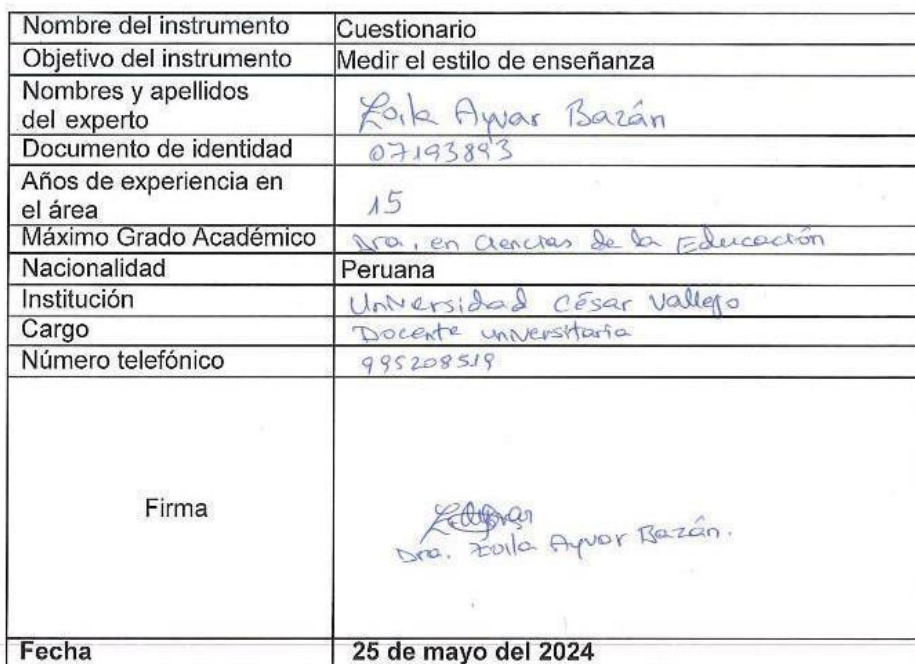 Nombre del instrumento Cuestionario
Objetivo del instrumento Medir el estilo de enseñanza
Nombres y apellidos
del experto Zoila Ayvar Bazán
Documento de identidad 07193893
Años de experiencia en
el área 15
Máximo Grado Académico Dra. en Ciencias de la Educación
Nacionalidad Peruana
Institución Universidad César Vallejo
Cargo Docente universitaria
Número telefónico 995208519
Firma
Dra. Zoila Ayvar Bazán.
Fecha 25 de mayo del 2024